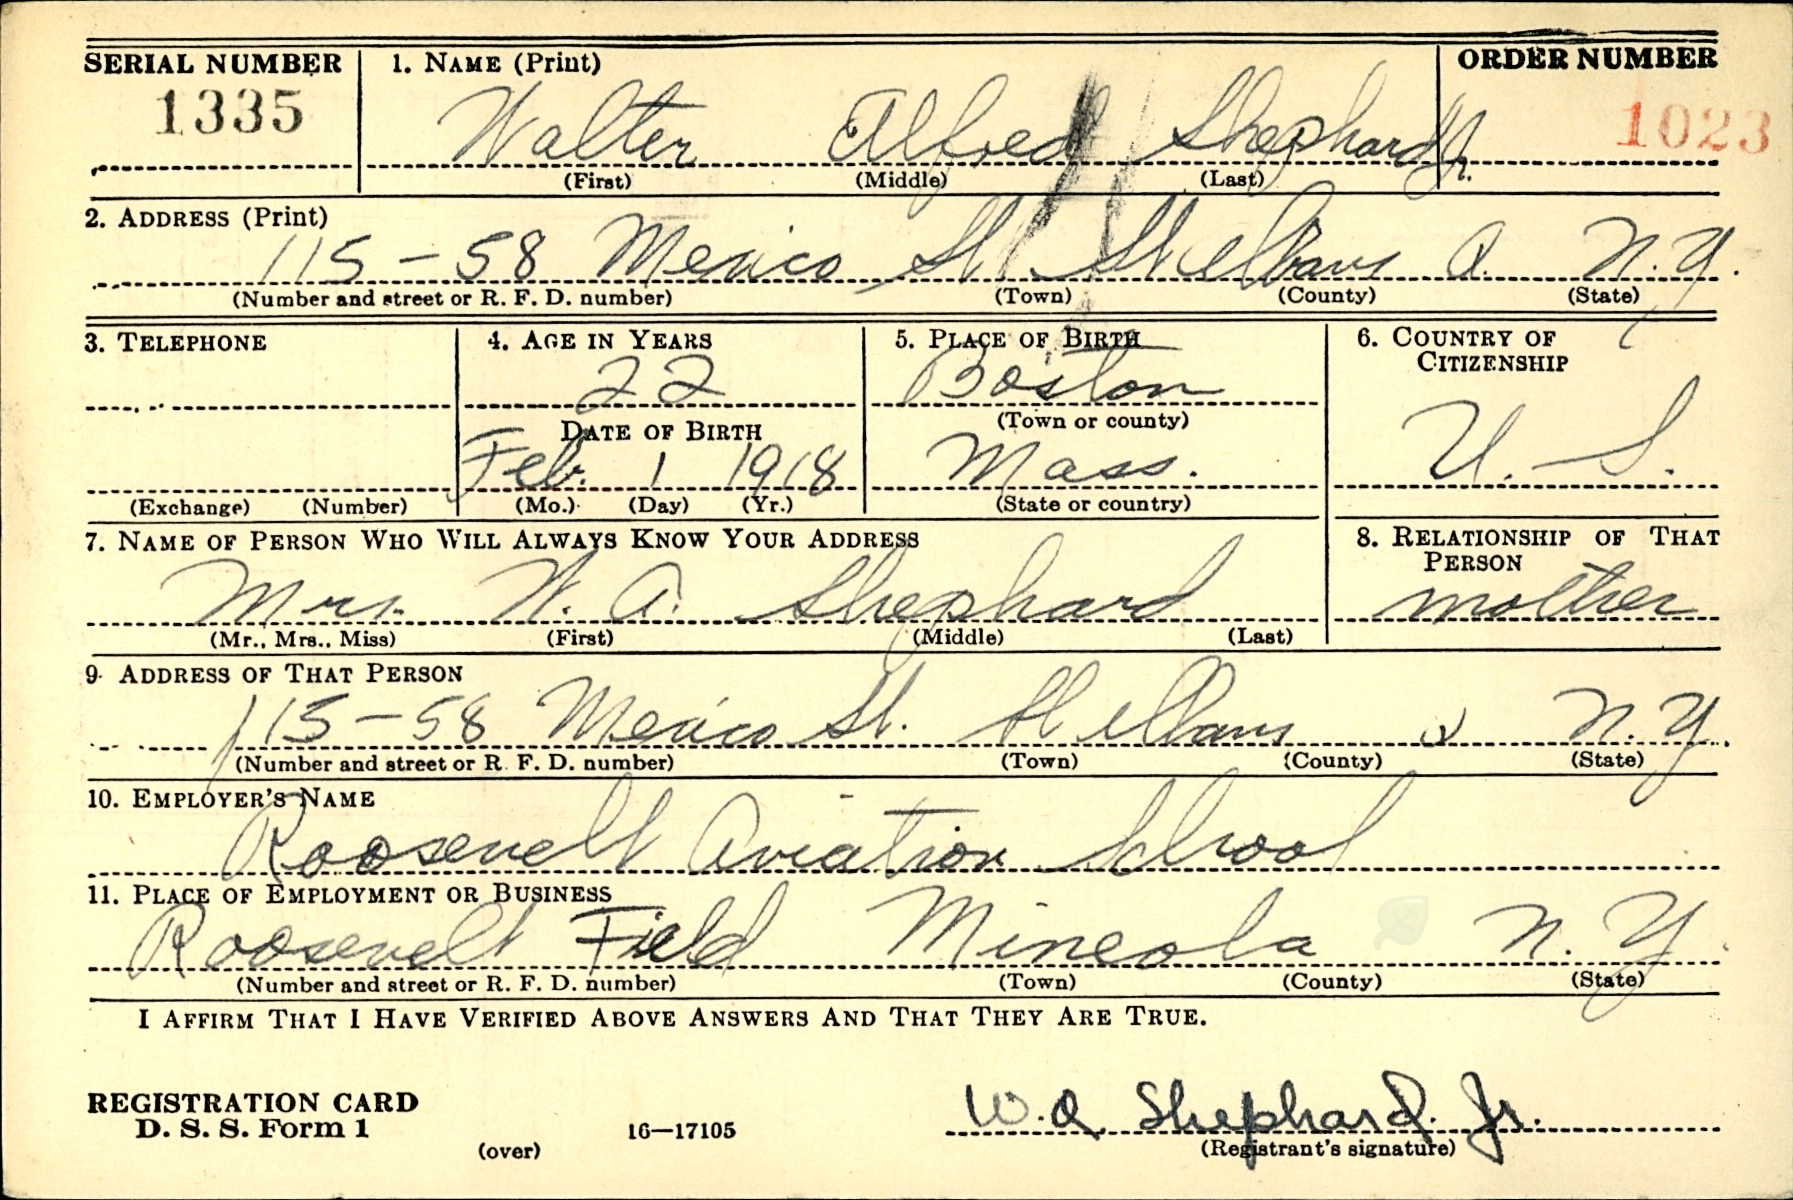 SERIAL NUMBER 1. NAME (Print) ORDER NUMBER
1335 Walter Alfred Shephard Jr. 1023
(First) (Middle) (Last)
2. ADDRESS (Print)
115-58 Mexico St. St Albans Q. N.Y.
(Number and street or R. F. D. number) (Town) (County) (State)
3. TELEPHONE 4. AGE IN YEARS 5. PLACE OF BIRTH 6. COUNTRY OF CITIZENSHIP
22 Boston
DATE OF BIRTH (Town or county) U. S.
Feb. 1 1918 Mass.
(Exchange) (Number) (Mo.) (Day) (Yr.) (State or country)
7. NAME OF PERSON WHO WILL ALWAYS KNOW YOUR ADDRESS 8. RELATIONSHIP OF THAT PERSON
Mrs. W. A. Shephard mother
(Mr., Mrs., Miss) (First) (Middle) (Last)
9. ADDRESS OF THAT PERSON
115-58 Mexico St. St Albans N.Y.
(Number and street or R. F. D. number) (Town) (County) (State)
10. EMPLOYER'S NAME
Roosevelt Aviation School
11. PLACE OF EMPLOYMENT OR BUSINESS
Roosevelt Field Mineola N. Y.
(Number and street or R. F. D. number) (Town) (County) (State)
I AFFIRM THAT I HAVE VERIFIED ABOVE ANSWERS AND THAT THEY ARE TRUE.
REGISTRATION CARD
W. A. Shephard. Jr.
D. S. S. Form 1 16—17105
(over) (Registrant's signature)